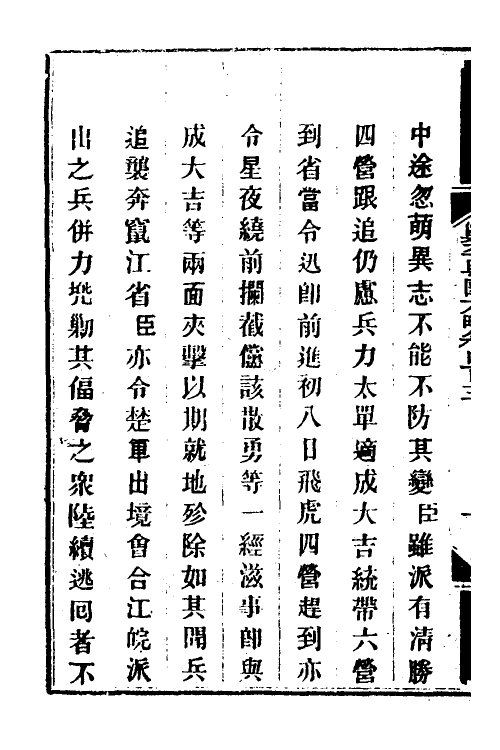 中途忽萌異志不能不防其變臣雖派有清勝
四營跟追仍慮兵力太單適成大吉統帶六營
到省當令迅卽前進初八日飛虎四營趕到亦
令星夜繞前攔截儻該散勇等一經滋事卽與
成大吉等兩面夾擊以期就地殄除如其聞兵
追襲奔竄江省臣亦令楚軍出境會合江皖派
出之兵併力兜勦其偪脅之衆陸續逃回者不